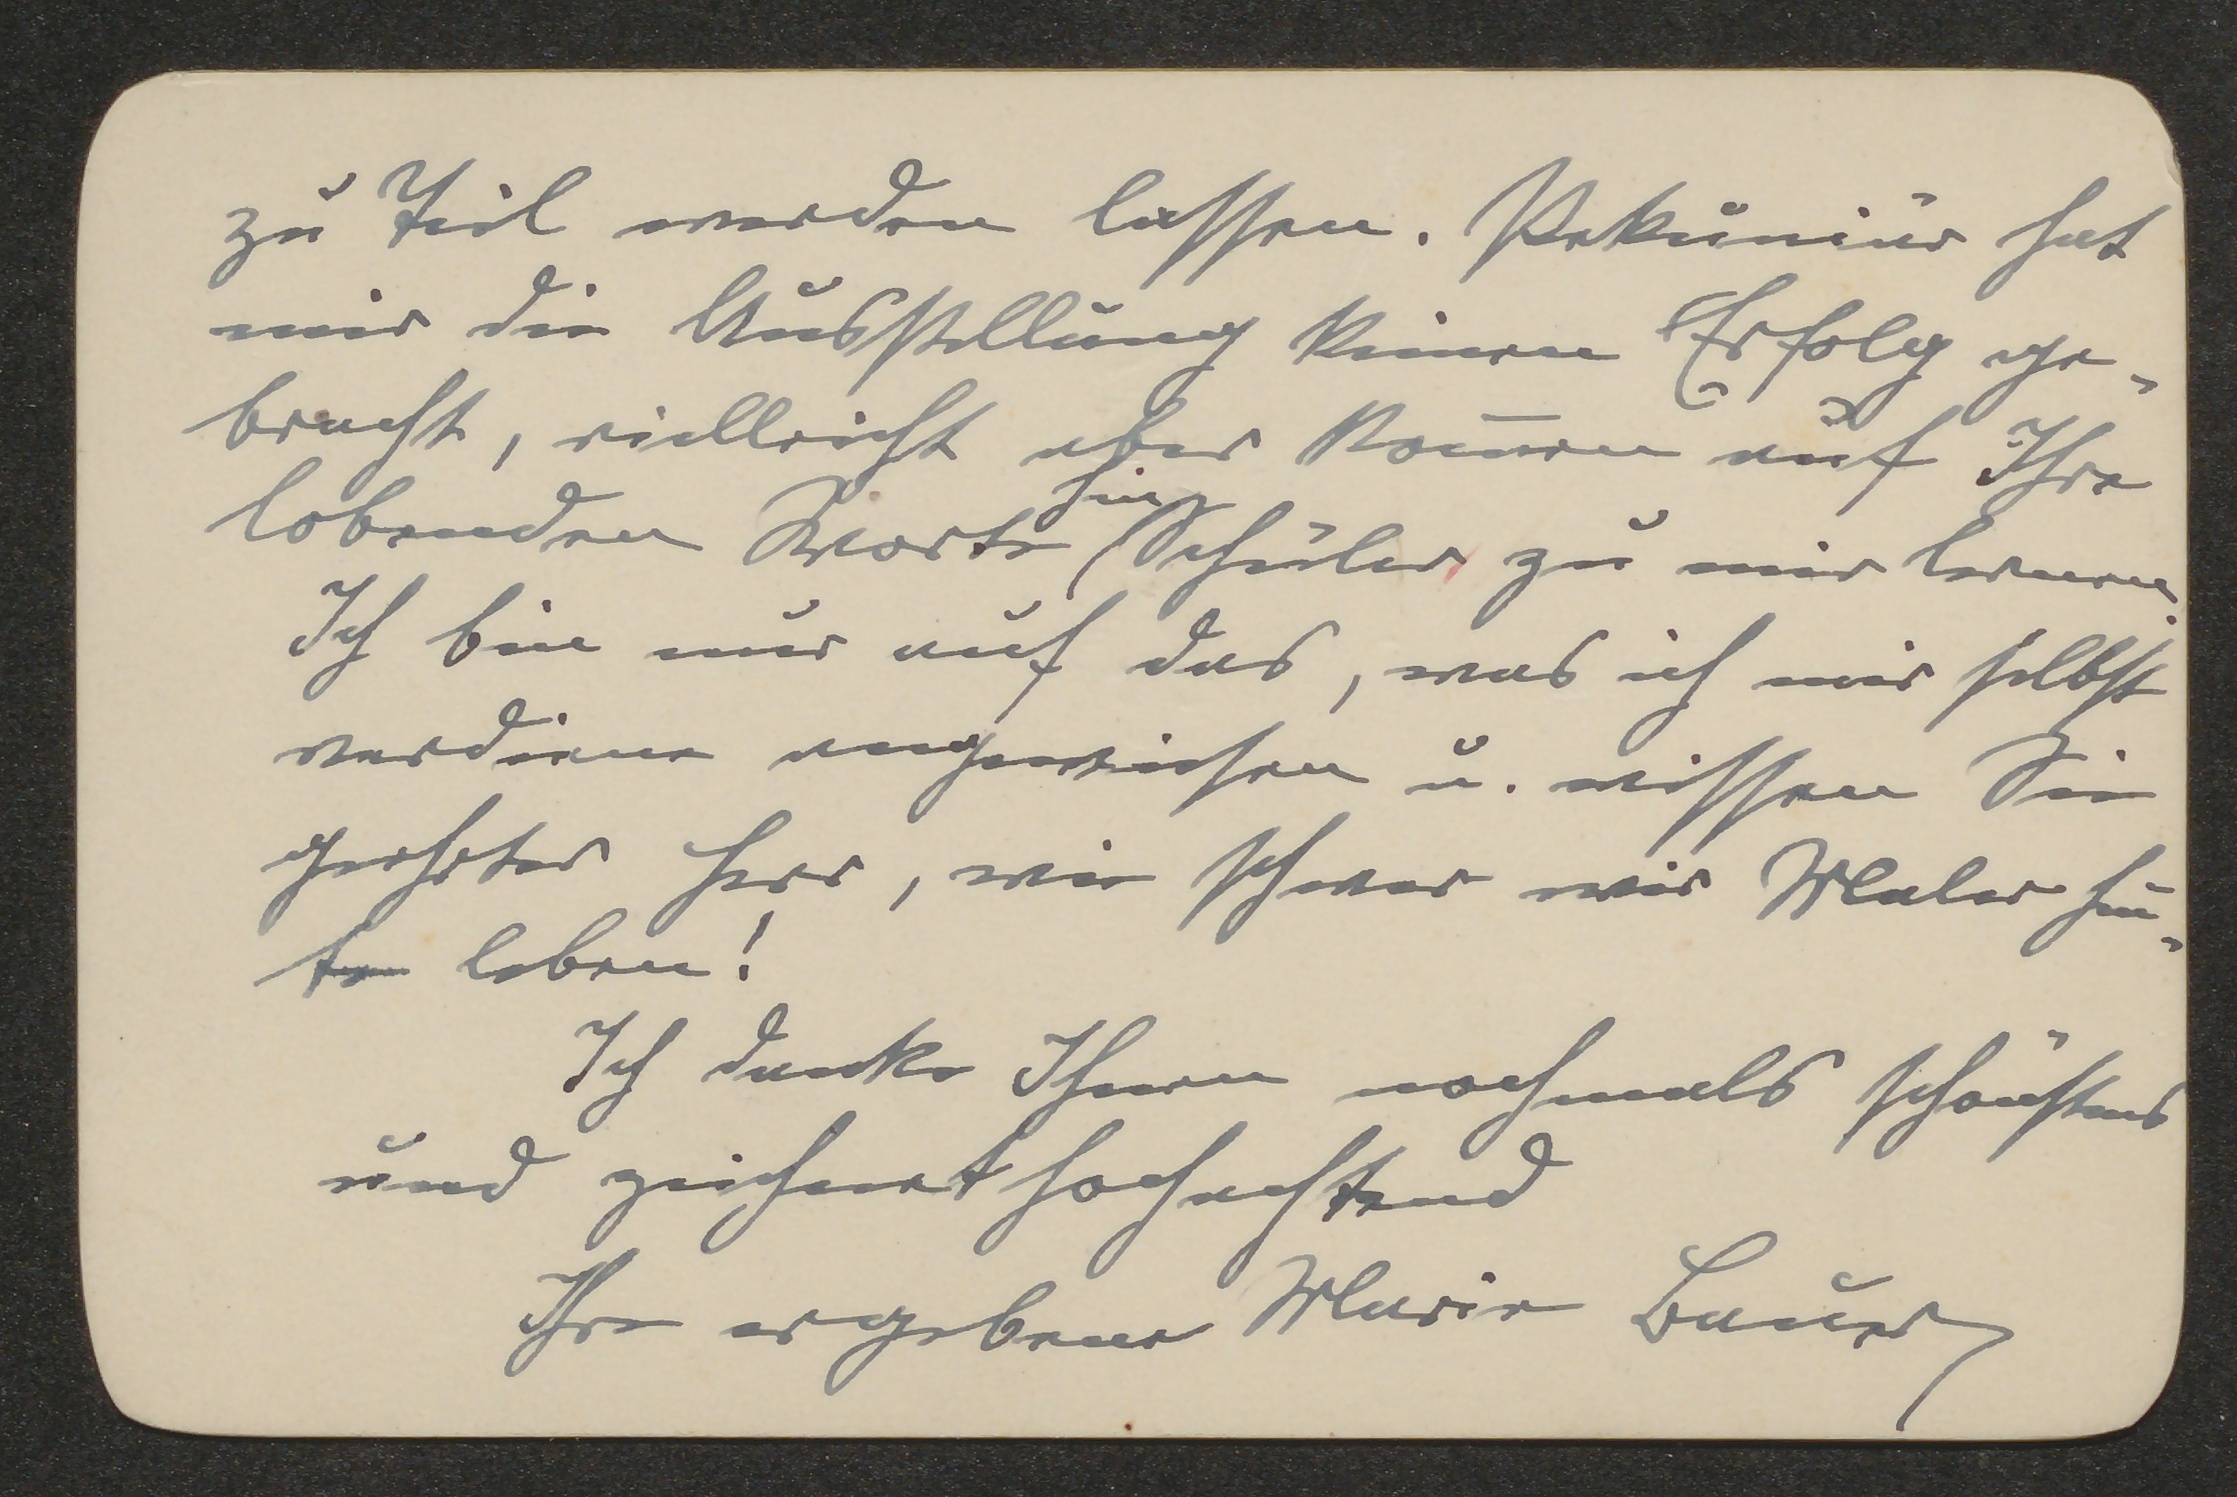 zu Teil werden lassen. Pekuniär hat
mir die Ausstellung keinen Erfolg ge-
bracht, vielleicht aber kom̄en auf Ihre
lobenden Worte hin Schüler zu mir lernen.
Ich bin nur auf das, was ich mir selbst
verdiene angewiesen u. wissen Sie
geehrter Herr, wie schwer wir Maler heu-
te leben!
Ich danke Ihnen nochmals schönstens
und zeichnet hochachtend
Ihre ergebene Marie Bauer